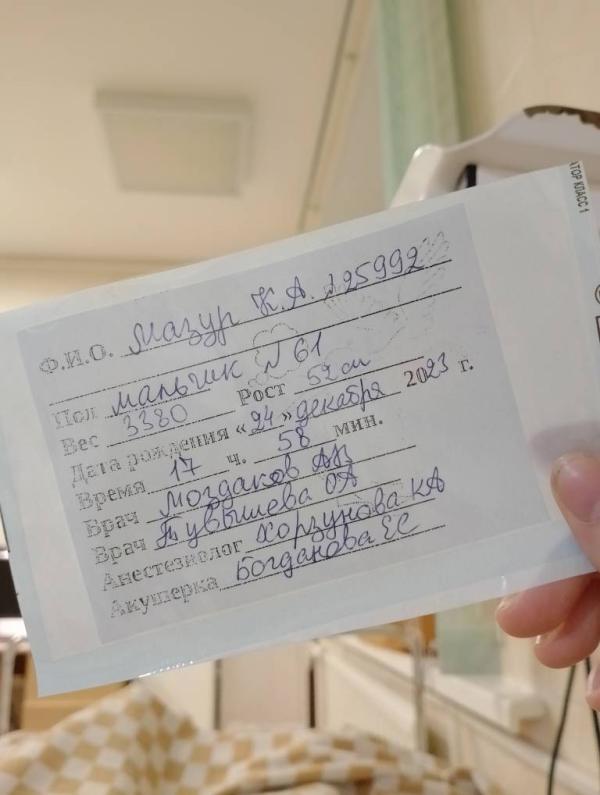 АТОР КЛАСС 1
Ф.И.О. Мазур К.А. №25992
Пол мальчик №61
Вес 3380 Рост 52 см
Дата рождения «24» декабря 2023 г.
Время 17 ч. 58 мин.
Врач Моздаков АП
Врач О.А
Анестезиолог Хорзунова КА
Акушерка Богданова ЕС